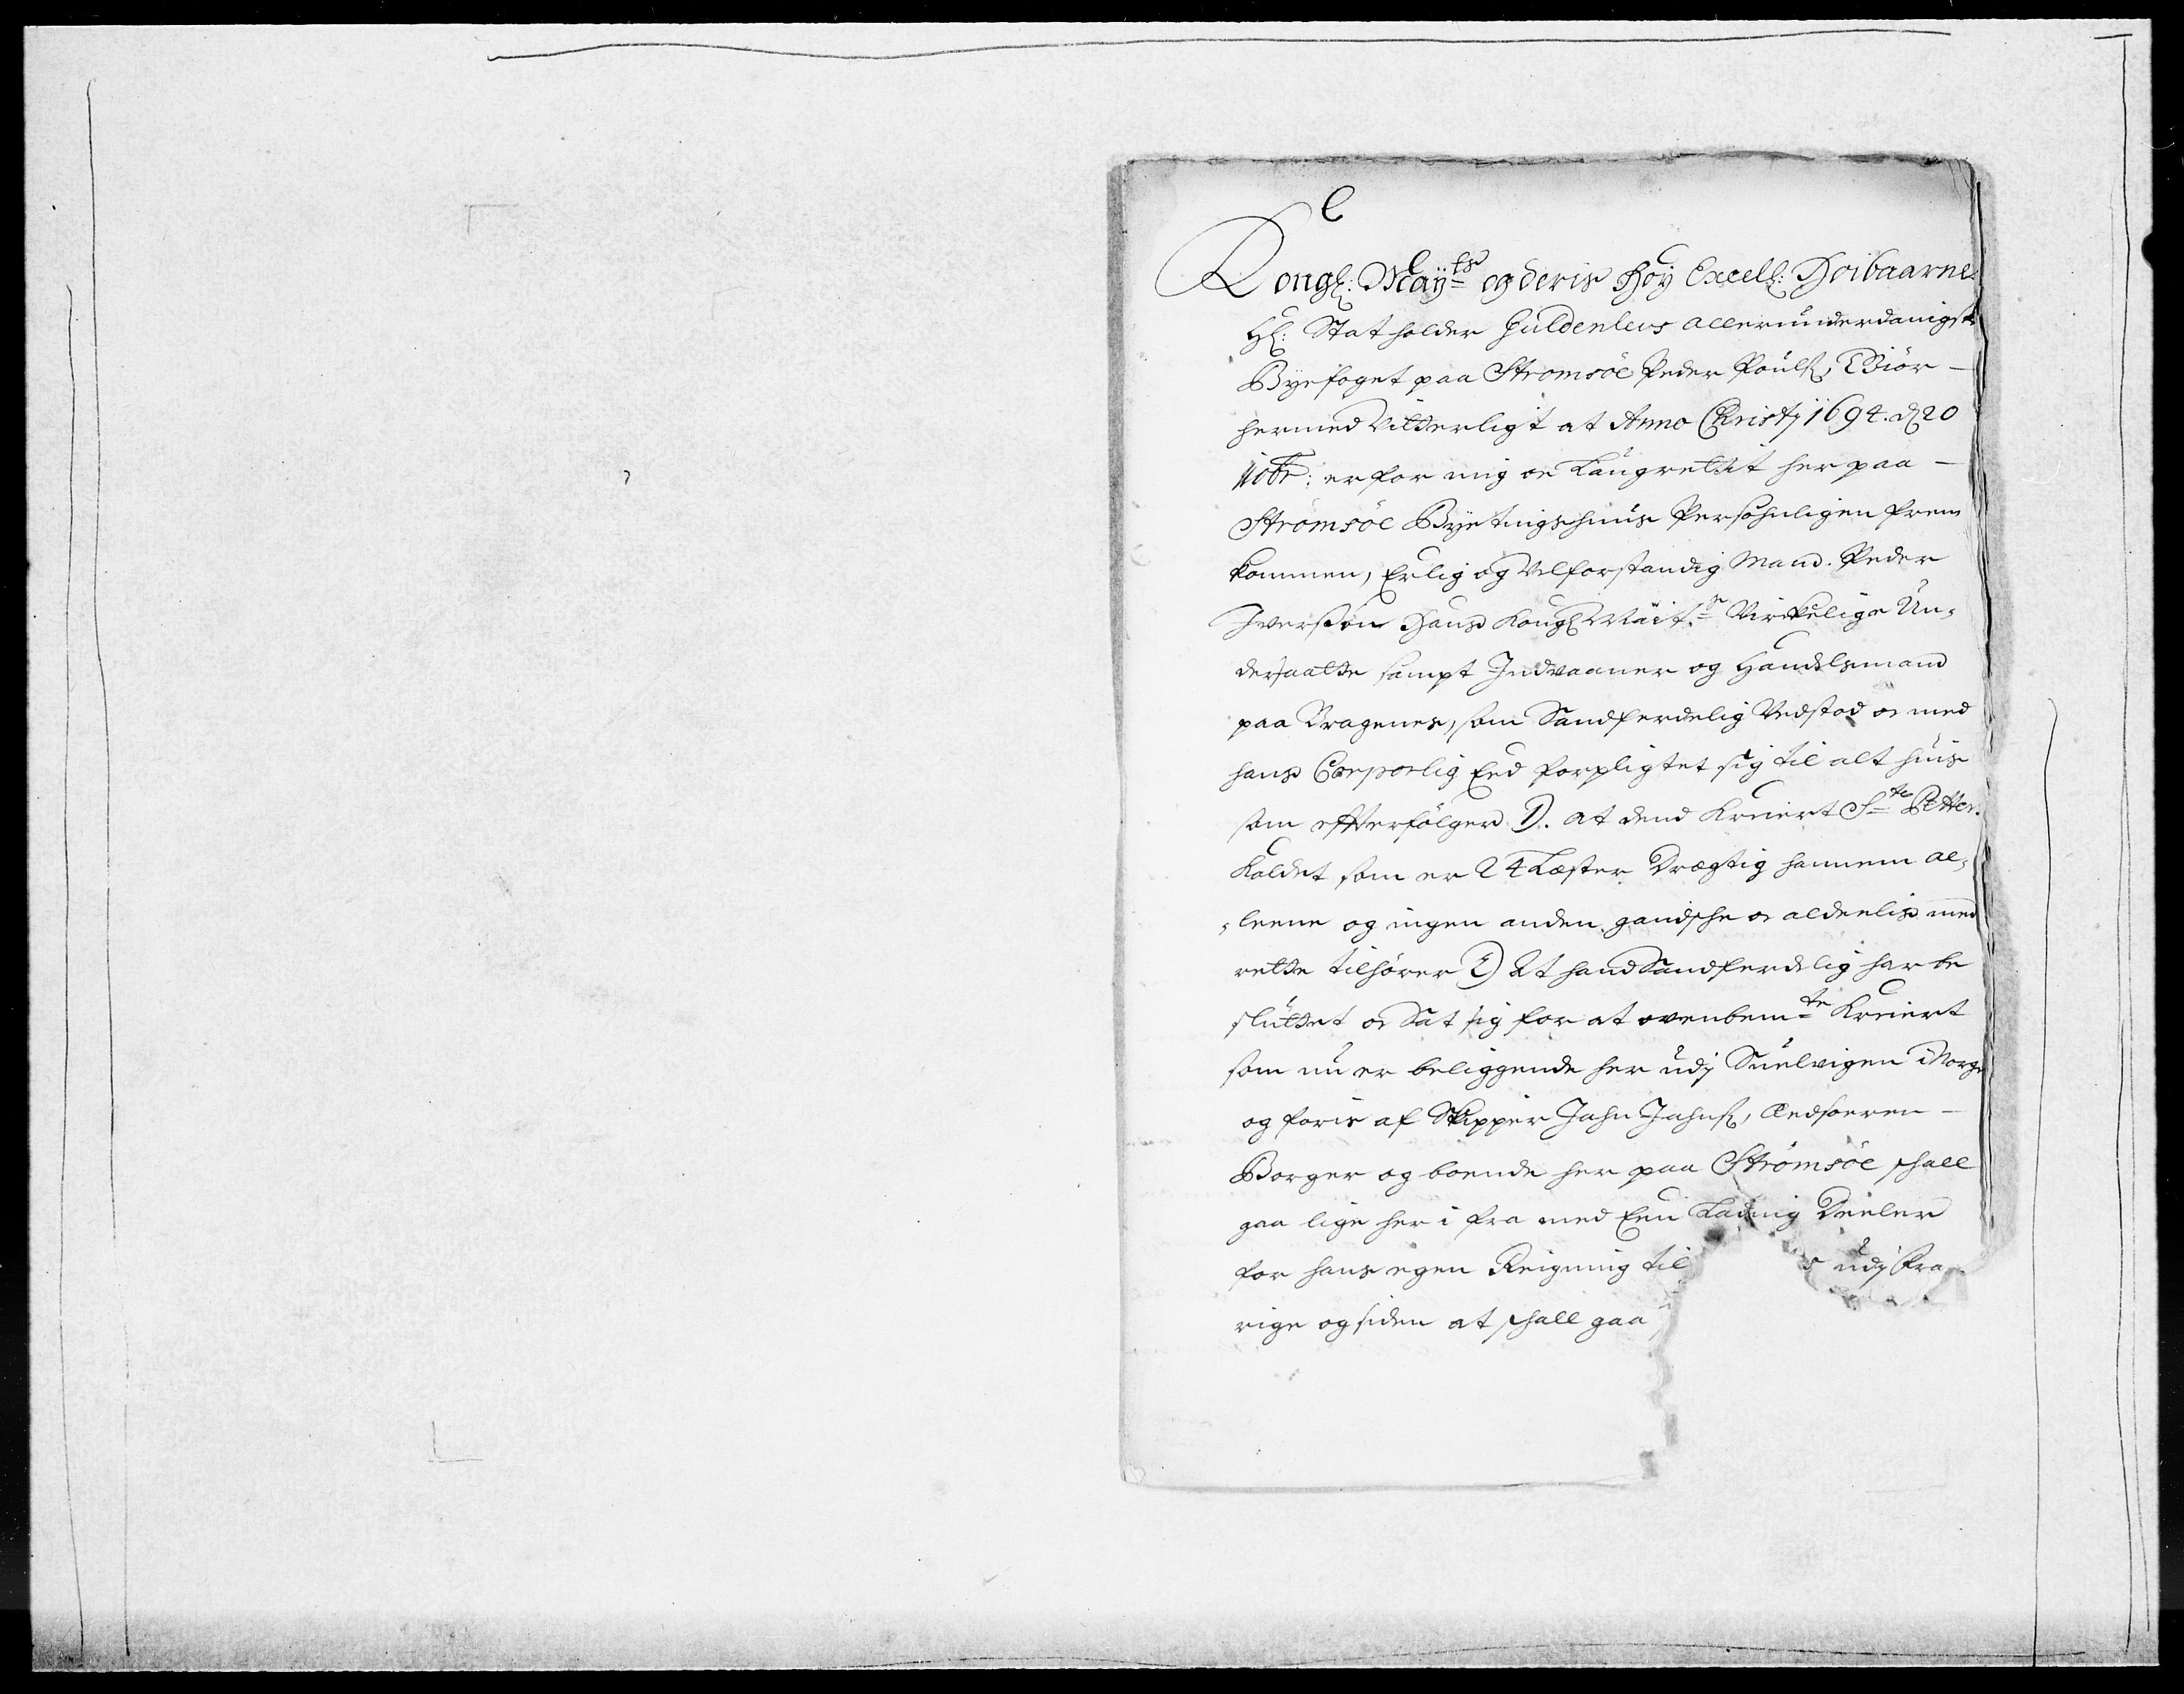 Kongl: Mayts og deris Høy Excell: Høibaarne
Hl: Stat holder Guldenlevs allerunderdanigste
Byefoget paa Strømsöe Peder Poulsß, Giör
hermed Vitterligt at Anno Christj 1694. d 20
Nobr: er for mig oc Laugrettet her paa
Strömsöe Byetingshuus Persohnligen frem
kommen, Erlig og Velforstandig Mand. Peder
Iversøn Hans Kongl Mäit. Virkelige Un¬
dersaatte sampt Indvaaner og Handelsmand
paa Bragenes, som Sandferdelig Vedstod oc med
hans Corporlig Eed forpligtet sig til alt huis
som effterfølger 1). at dend Kreiert Ste Petter
Kaldet som er 24 Læster Drægtig hannem al¬
leene og ingen anden gandsche oc aldeelis med
rette tilhører 2) At hand Sandferdelig har be
sluttet oc Sat sig for at ovenbemte Kreiert
som nu er beliggende her udj Suelvigen i Norge
og föris af Skipper Jahn Jahnsß, Eedsoeren
Borger og boende her paa Strömsöe schall
gaa lige her i fra med Een Ladning Deeler
for hans egen Reigning til udj Fra
rige og siden at schall gaa